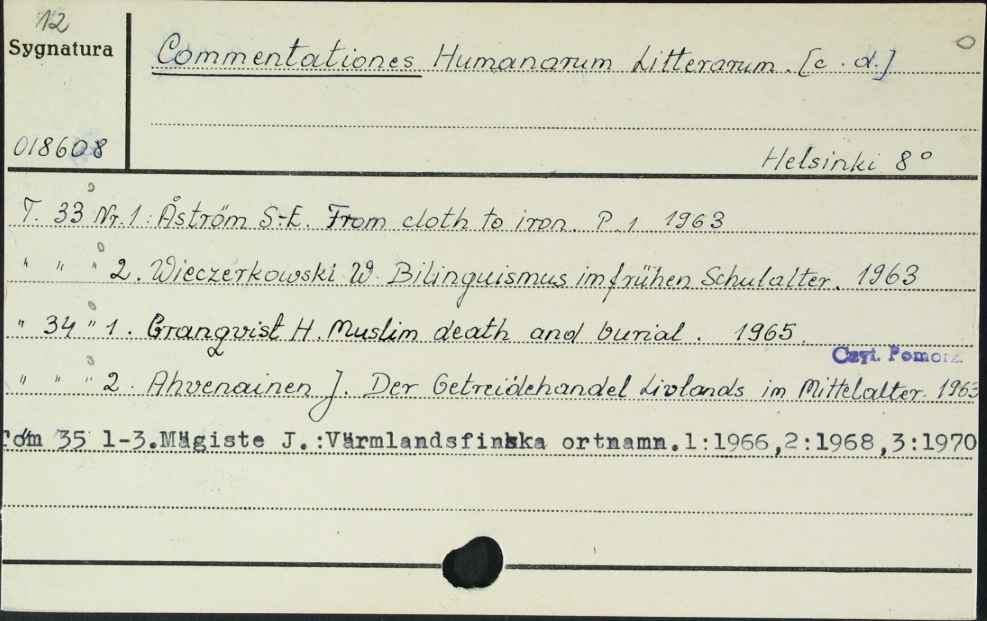 12
Sygnatura
Commentationes Humanarum Litterarum. [c. d.]
018608
Helsinki 8°
T. 33 Nr. 1. Åström S-E. From cloth to iron. P. 1 1963
" " " 2. Wieczerkowski W. Bilinguismus im frühen Schulalter. 1963
" 34 " 1. Granqvist H. Muslim death and burial. 1965.
Czyt. Pomorz.
" " " 2. Ahvenainen J. Der Getreidehandel Livlands im Mittelalter. 1963
Tom 35 1-3. Mägiste J.: Värmlandsfinska ortnamn. 1:1966, 2:1968, 3:1970